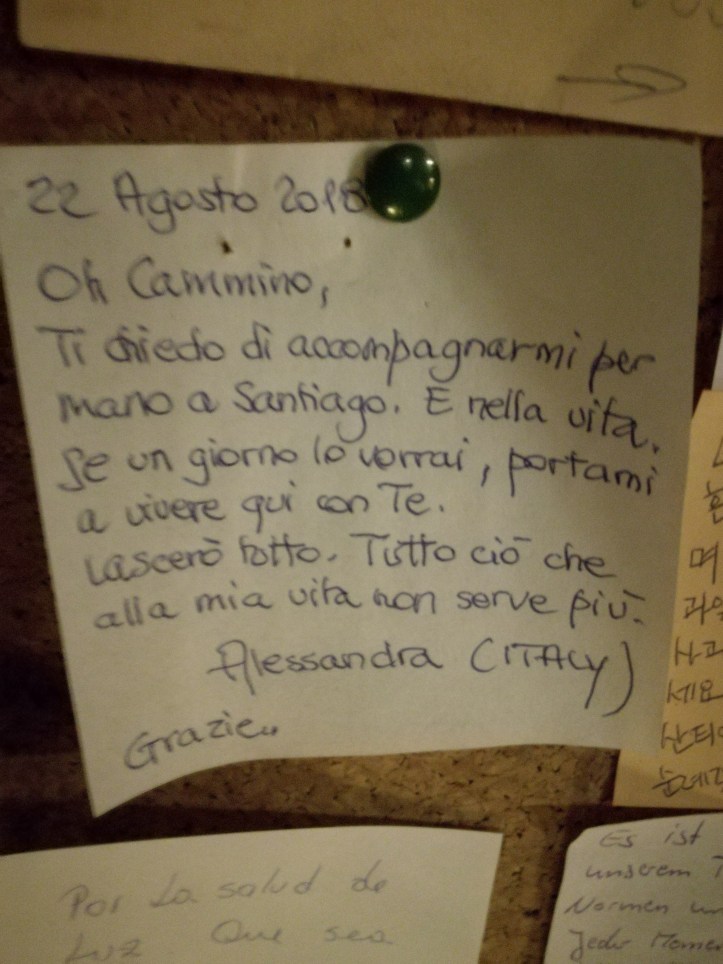 22 Agosto 2018
Oh Cammino,
Ti chiedo di accompagnarmi per
mano a Santiago. E nella vita.
Se un giorno lo vorrai, portami
a vivere qui con Te.
Lascerò tutto. Tutto ciò che
alla mia vita non serve più.
Alessandra (ITALY)
Grazie..
며
과일
사과
세요
산티아
눈
Por La salud de
Luz. Que sea
Es ist
unserem
Normen un
Jeder Momen